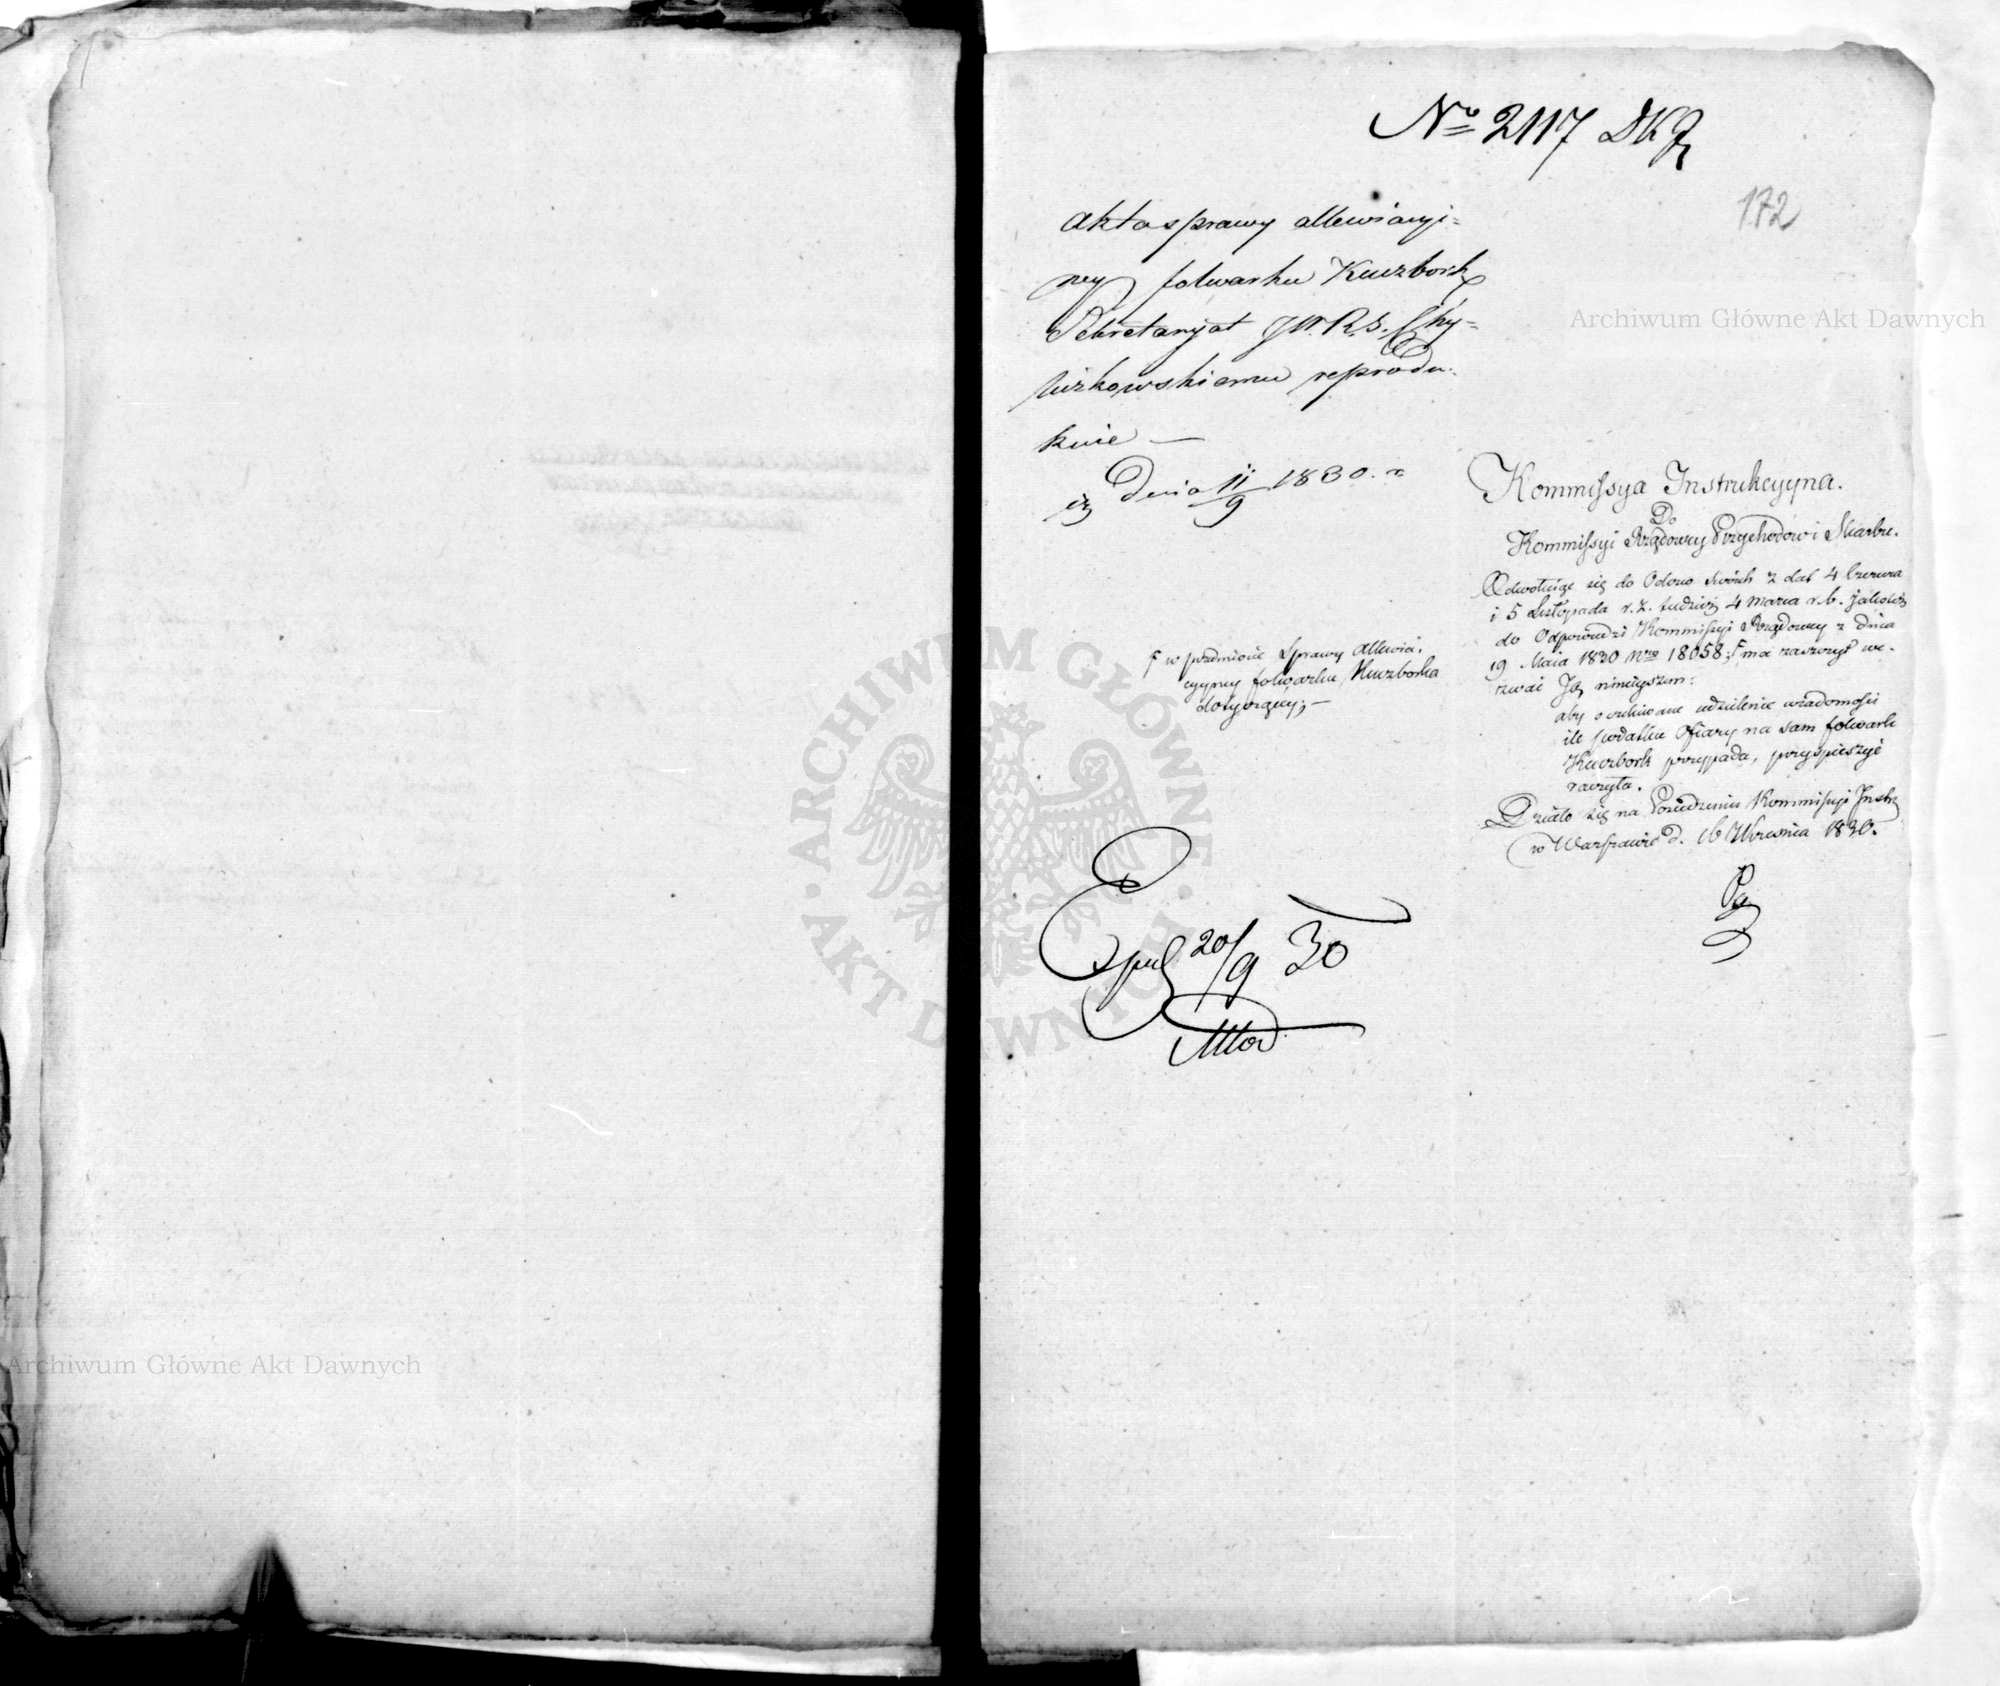 No 2117 DKJ
172
akta sprawy allewiacyi=
ney folwarku Kuczbork
Sekretaryat JW. R. S. Chy=
liczkowskiemu reprodu=
kuie —
Dnia 11/9 1830. r
Kommissya Instrukcyyna.
Do
Kommissyi Rządowey Przychodów i Skarbu.
Odwołuiąc się do Odezw swoich z dat 4 Czerwca
i 5 Listopada r. z. tudzież 4 Marca r. b. jakoteż
do Odpowiedzi Kommissyi Rządowey z dnia
19 Maia 1830 Nro 18058; F ma zaszczyt we-
zwać Ją ninieyszem:
F w przedmiocie Sprawy Allewia-
cyyney folwarku Kuczborka
dotyczącey; —
aby oczekiwane udzielenie wiadomości
ile podatku Ofiary na sam folwark
Kuczbork przypada, przyspieszyć
raczyła.
Działo się na Posiedzeniu Kommissyi Instr
w Warszawie d. 16 Września 1830.
Exped 20/9 30
Archiwum Główne Akt Dawnych
Archiwum Główne Akt Dawnych
ARCHIWUM GŁÓWNE · AKT DAWNYCH ·